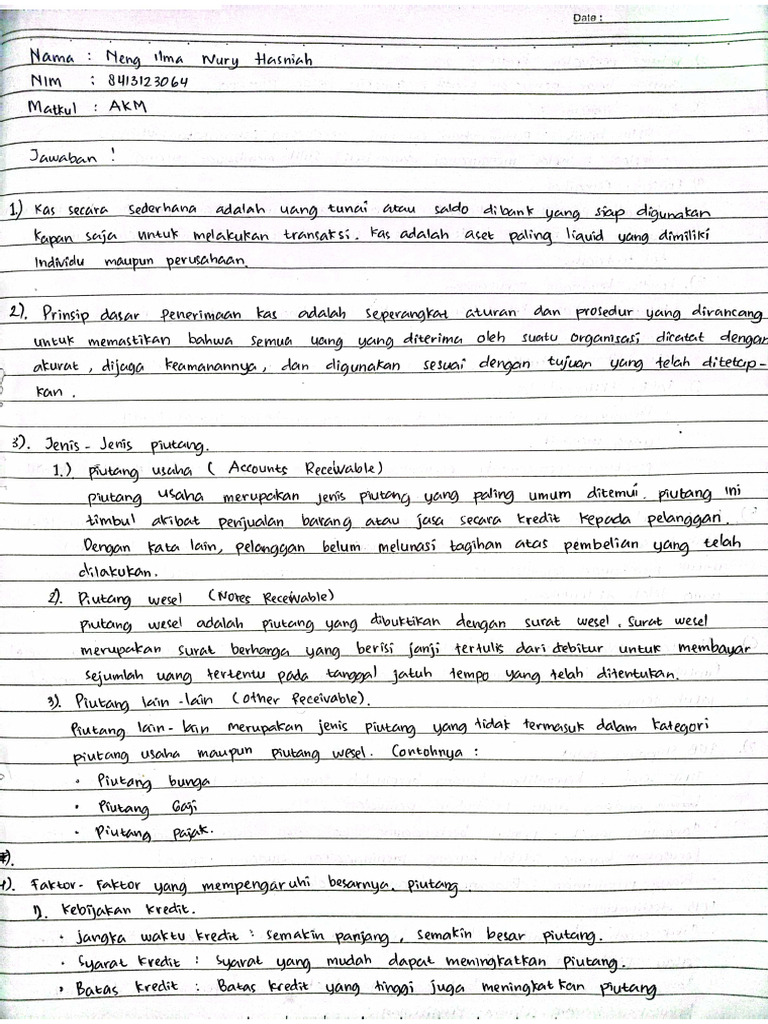 Date :
Nama : Neng Ilma Nury Hasniah
NIM : 8413123064
Matkul : AKM
Jawaban !
1) Kas secara sederhana adalah uang tunai atau saldo dibank yang siap digunakan
Kapan saja untuk melakukan transaksi. Kas adalah aset paling liquid yang dimiliki
Individu maupun perusahaan.
2). Prinsip dasar penerimaan kas adalah seperangkat aturan dan prosedur yang dirancang
untuk memastikan bahwa semua uang yang diterima oleh suatu organisasi dicatat dengan
akurat, dijaga keamanannya, dan digunakan sesuai dengan tujuan yang telah ditetap-
kan.
3). Jenis - Jenis piutang.
1.) piutang usaha ( Accounts Receivable)
piutang usaha merupakan jenis piutang yang paling umum ditemui. piutang ini
timbul akibat penjualan barang atau jasa secara kredit kepada pelanggan.
Dengan kata lain, pelanggan belum melunasi tagihan atas pembelian yang telah
dilakukan.
2). Piutang wesel (Notes Receivable)
piutang wesel adalah piutang yang dibuktikan dengan surat wesel. Surat wesel
merupakan surat berharga yang berisi janji tertulis dari debitur untuk membayar
sejumlah uang tertentu pada tanggal jatuh tempo yang telah ditentukan.
3). Piutang lain -lain (Other Receivable).
Piutang lain-lain merupakan jenis piutang yang tidak termasuk dalam kategori
piutang usaha maupun piutang wesel. Contohnya :
• Piutang bunga
• Piutang Gaji
• Piutang pajak.
4). Faktor- Faktor yang mempengaruhi besarnya. piutang.
1). Kebijakan kredit.
• jangka waktu kredit : semakin panjang, semakin besar piutang.
• Syarat kredit : Syarat yang mudah dapat meningkatkan piutang.
• Batas kredit : Batas kredit yang tinggi juga meningkatkan piutang